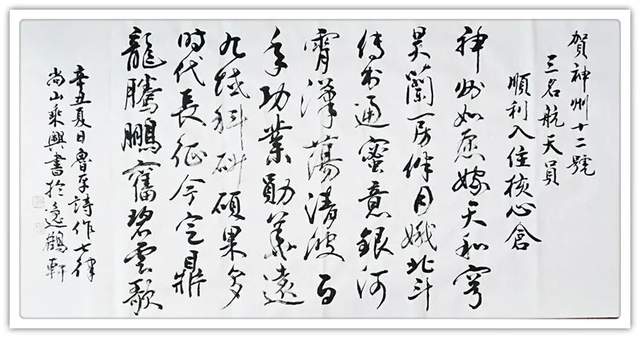 賀神州十二號
三名航天員
順利入住核心倉
神州如愿嫁天和穹
昊房伴月娥北斗
传书通蜜意銀河
霄漢蕩清波百
年功業勛遠
九域科研碩果多
時代長征今定鼎
龍騰鵬奮碧雲歌
辛丑夏日魯平詩作七律
尚山乘興書於逸鶴軒